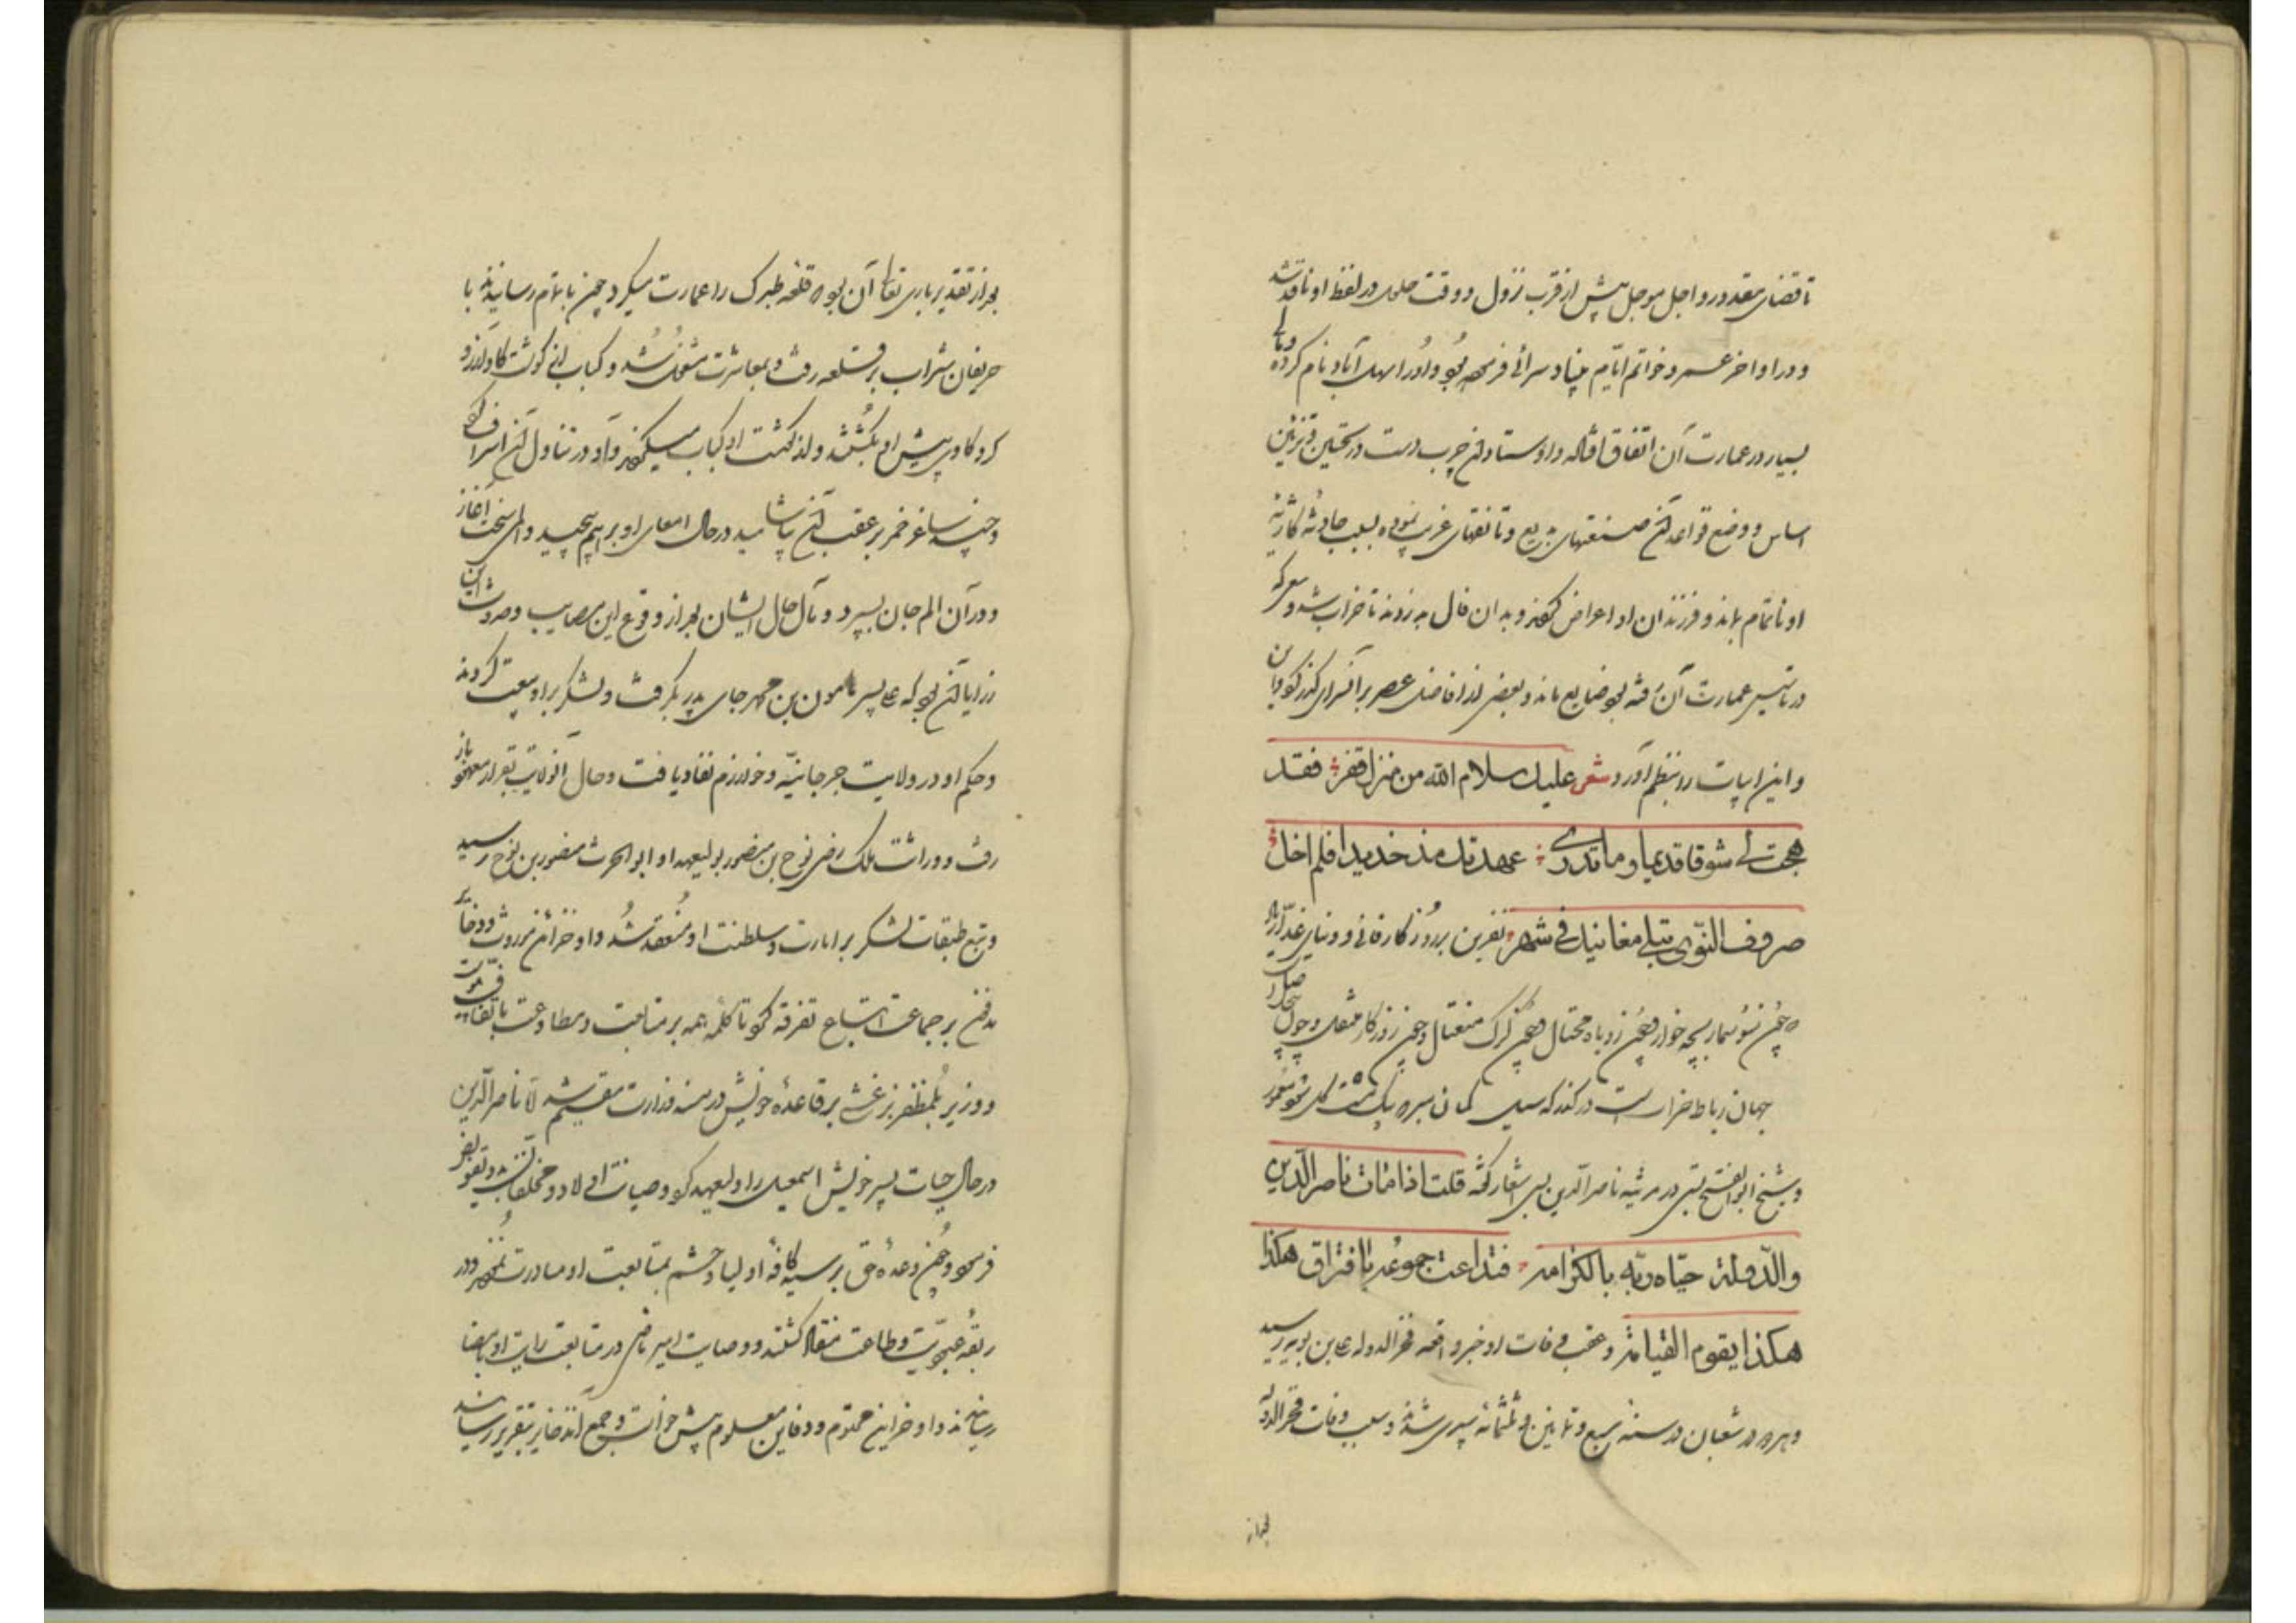 تا قضای مقدور و اجل موجل پیش از قرب نزول و وقت حلول در لفظ او نافذ شد
و در اواخر عمر و خواتم ایام بنیاد سرائی فرموده بود و اورا سهل آباد نام کرده و مالی
بسیار در عمارت آن اتفاق افتاده و اوستادان چرب دست در تحسین و تزیین
اساس و وضع قواعد آن صنعتهای بدیع و تانقهای غریب نموده بسبب حادثه کارثه
او ناتمام بماند و فرزندان او اعراض کردند و بدان فال بد زدند تا خراب شد و هرچه
در تاسیس عمارت آن رفته بود ضایع ماند و بعضی از افاضل عصر بر آنسرای گذر کرد و این
و این ابیات را بنظم آورد شعر علیك سلام الله من منزل قفر فقد
هجت لی شوقا قدیما وما تدری عهدتك مذ خدیدا فلم اخل
صروف النوی تبلی مغانیك فی شهر نفرین بر روز کار فانی و دنیای غدار باد
که چون سوسمار بچه خوار و چون روباه محتال و چون گرگ مغتال و چون روزگار
جهان رباط خرابست در گذرکه سیل گمان مبر که بیک مشت گل شود معمور
و شیخ ابوالفتح بستی در مرثیه ناصر الدین بسی اشعار گفته قلت اذا مات ناصر الدین
والدولة حیاه ربه بالکرامه فتداعت جموعه بافتراق هکذا
هکذا یقوم القیامة و عقب وفات او خبر واقعه فخر الدوله علی بن بویه رسید
و هر دو در شعبان در سنه سبع و ثمانین و ثلثمائه سپری شدند و سبب وفات فخر الدوله
بعد از
بعد از تقدیر باری تعالی آن بود که قلعه طبرک را عمارت میکرد چون باتمام رسانیدند با
حریفان شراب بر قلعه رفت و بمعاشرت مشغول شد و کبابی از گوشت گاو آرزو
کرد گاوی پیش او بکشتند و از گوشت او کباب میکردند و او در تناول آن اسراف کرد
و چند ساغر خمر بر عقب آن بیاشامید در حال امعای او بر هم پیچید و المی سخت آغاز
و در آن الم جان بسپرد و مآل حال ایشان بعد از وقوع این مصایب و حدوث این
رزایا آن بود که علی پسر مامون بن محمد جای پدر بگرفت و لشکر بر او بیعت کردند
و حکم او در ولایت جرجانیه و خوارزم نفاذ یافت و حال آنولایت بقرار معهود باز
رفت و وراثت ملک رضی نوح بن منصور بولیعهد او ابو الحرث منصور بن نوح رسید
و تبع طبقات لشکر بر امارت و سلطنت او منعقد شد و او خزائن موروث و دفائن
مدفن بر جماعت اتباع تفرقه کرد تا کلمه همه بر متابعت و مطاوعت
و وزیر بلمظفر برغشی بر قاعده خویش در مسند وزارت مقیم شد اما ناصر الدین
در حال حیات پسر خویش اسمعیل را ولیعهد کرد و صیانت اولاد و مخلفات بدو تفویض
فرمود و چون وعده حق برسید کافه اولیا و حشم بمتابعت او مبادرت نمودند و در
ربقه عبودیت و طاعت منقاد گشتند و وصایت امیر ماضی در متابعت رایت او بامضا
رسانیدند و او خزاین محتوم و دفاین معلوم پیش خواست و جمع آن ذخایر بتقریر رسانید